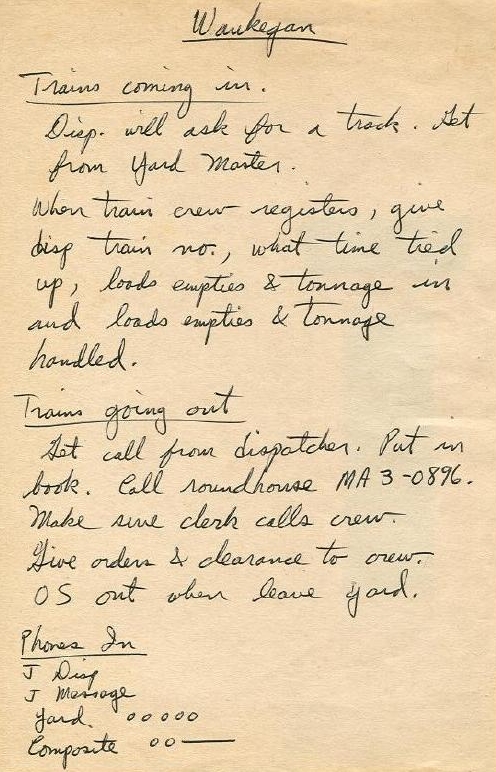 Waukegan
Trains coming in.
Disp. will ask for a track. Get
from Yard Master.
When train crew registers, give
disp train no., what time tied
up, loads empties & tonnage in
and loads empties & tonnage
handled.
Trains going out
Get call from dispatcher. Put in
book. Call roundhouse MA 3-0896.
Make sure clerk calls crew.
Give orders & clearance to crew.
OS out when leave yard.
Phones In
J Disp
J Message
Yard. o o o o o
Composite o o —